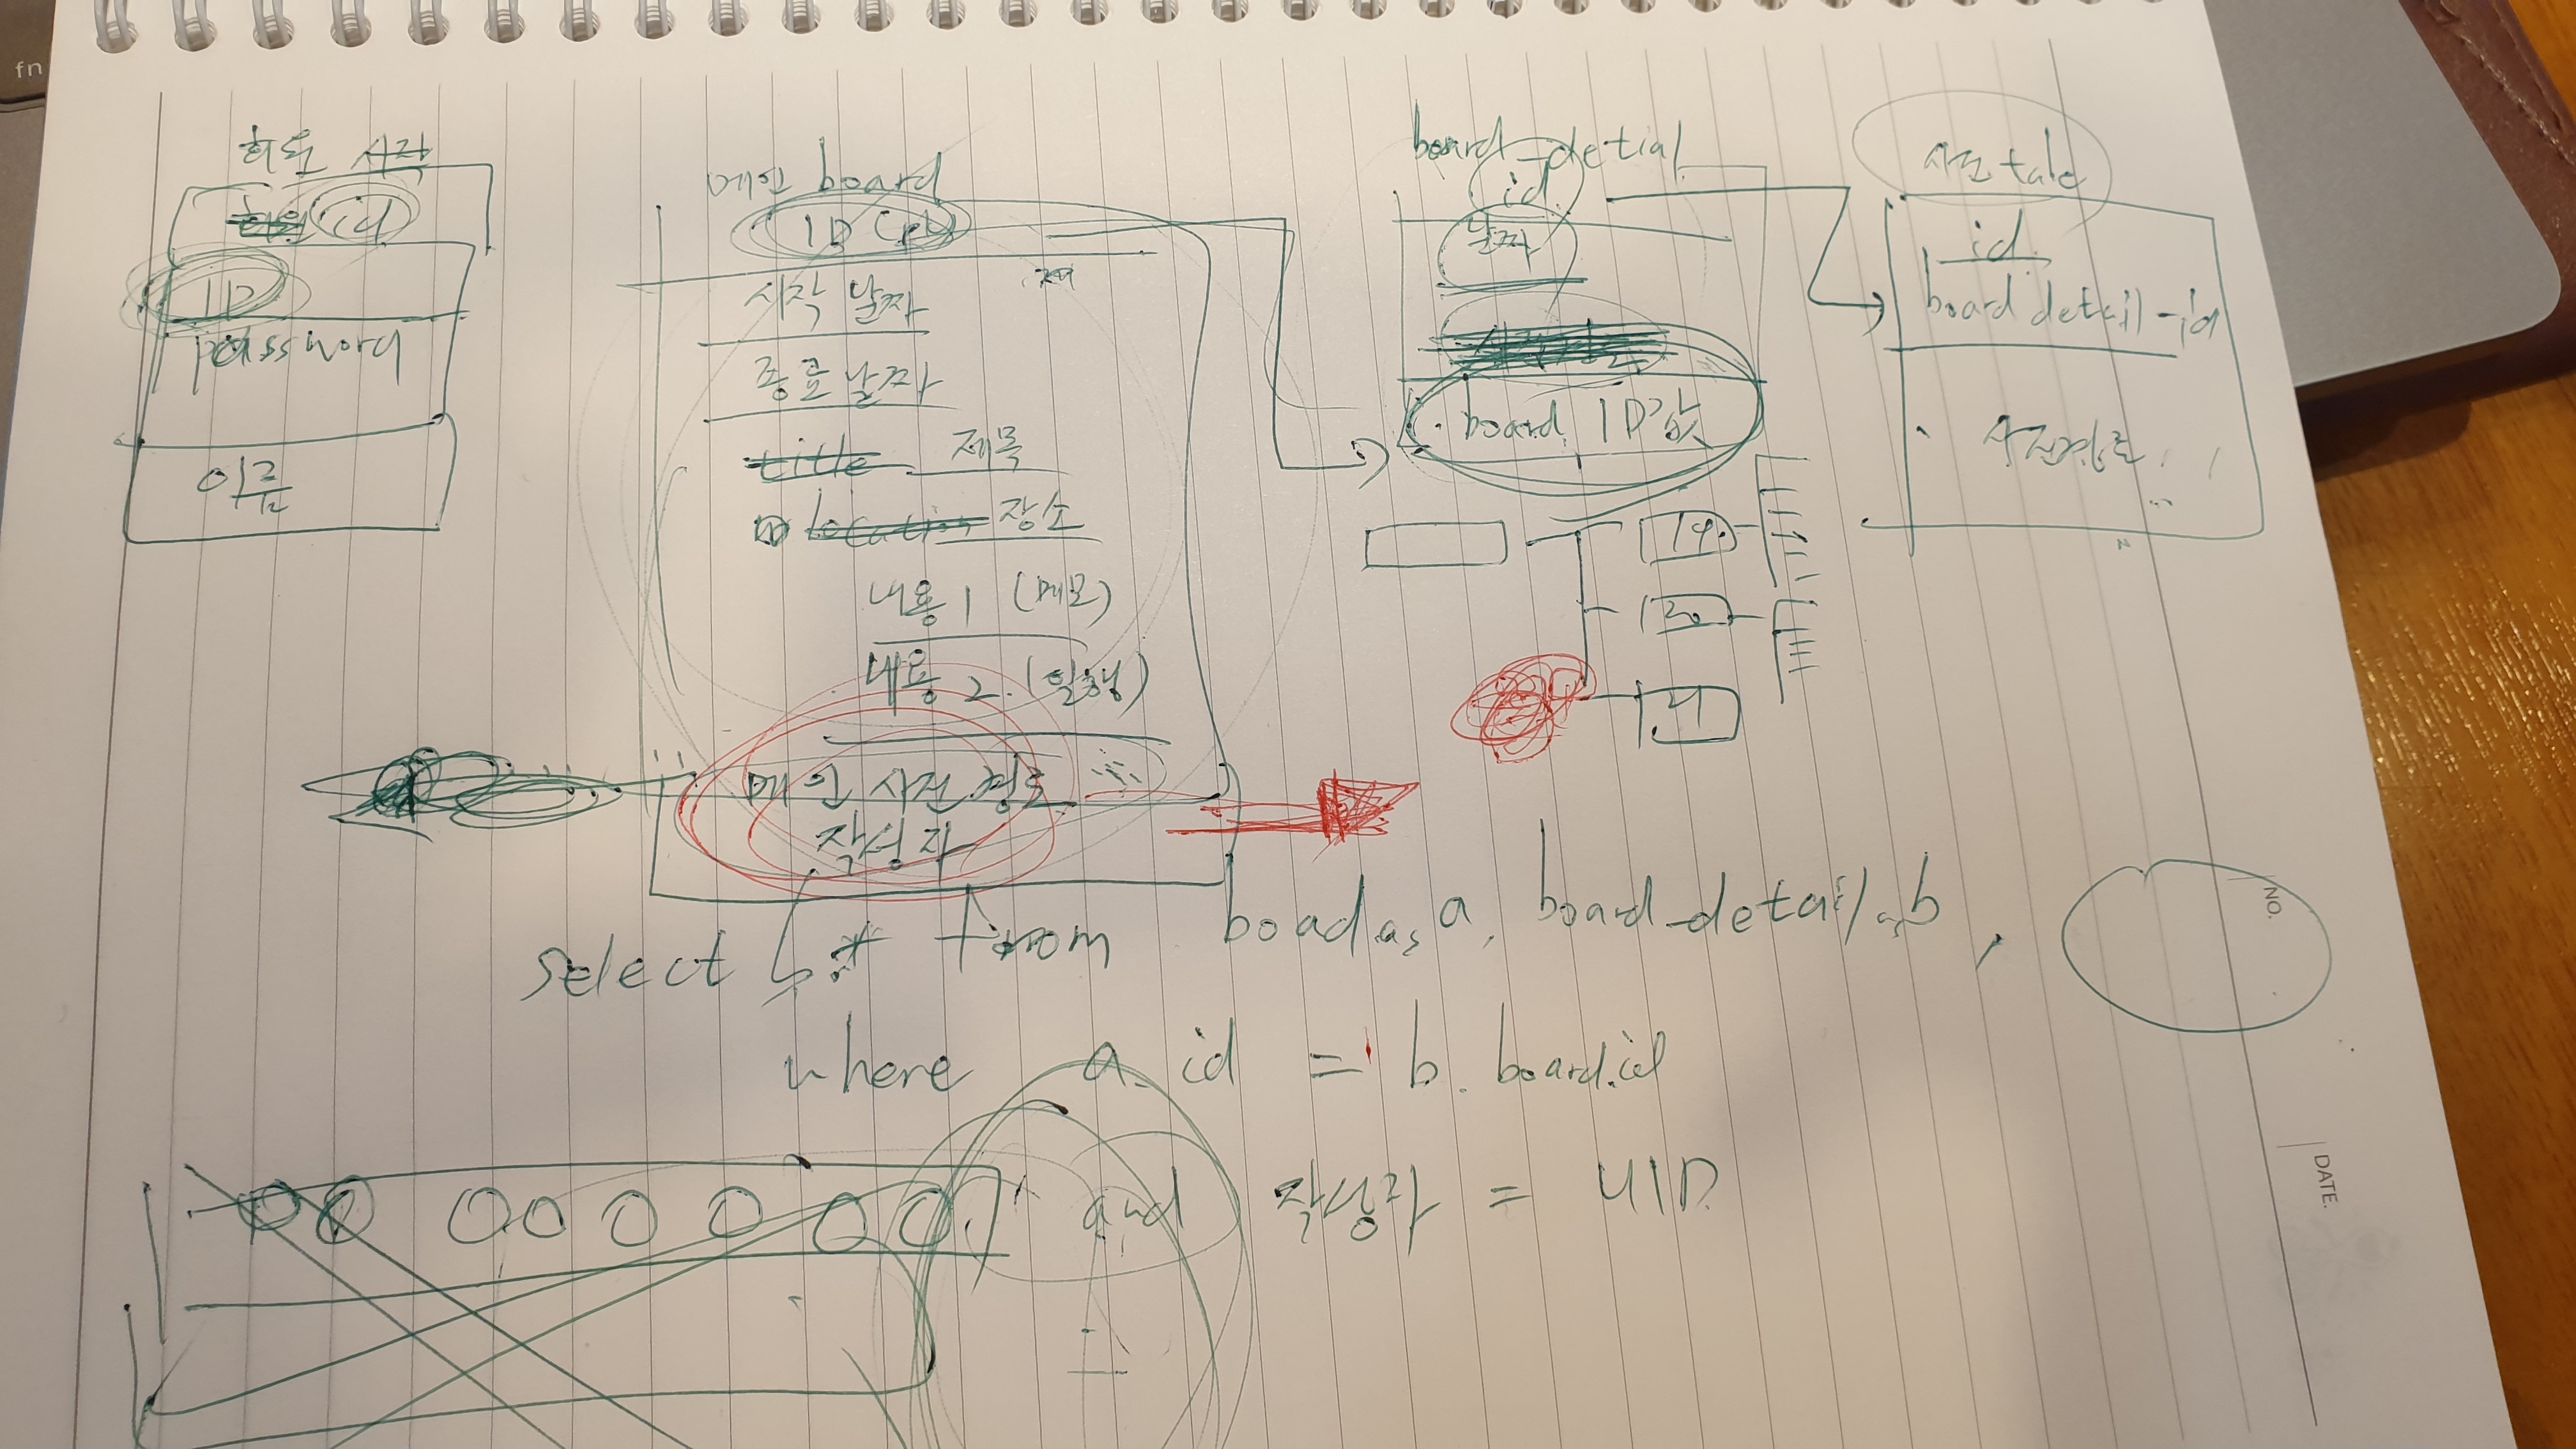 fn
id
ID
password
이름
메인 board
ID (pk)
시작 날짜
종료 날짜
title 제목
location 장소
내용 1 (메모)
내용 2. (일행)
메인 사진 경로
작성자
board_detial
id
날짜
board ID값
19.
20
21
사진 tale
id
board detail-id
사진경로
select b.* from boad as a, board_detail as b,
where a. id = b. board.id
and 작성자 = UID
NO.
DATE.